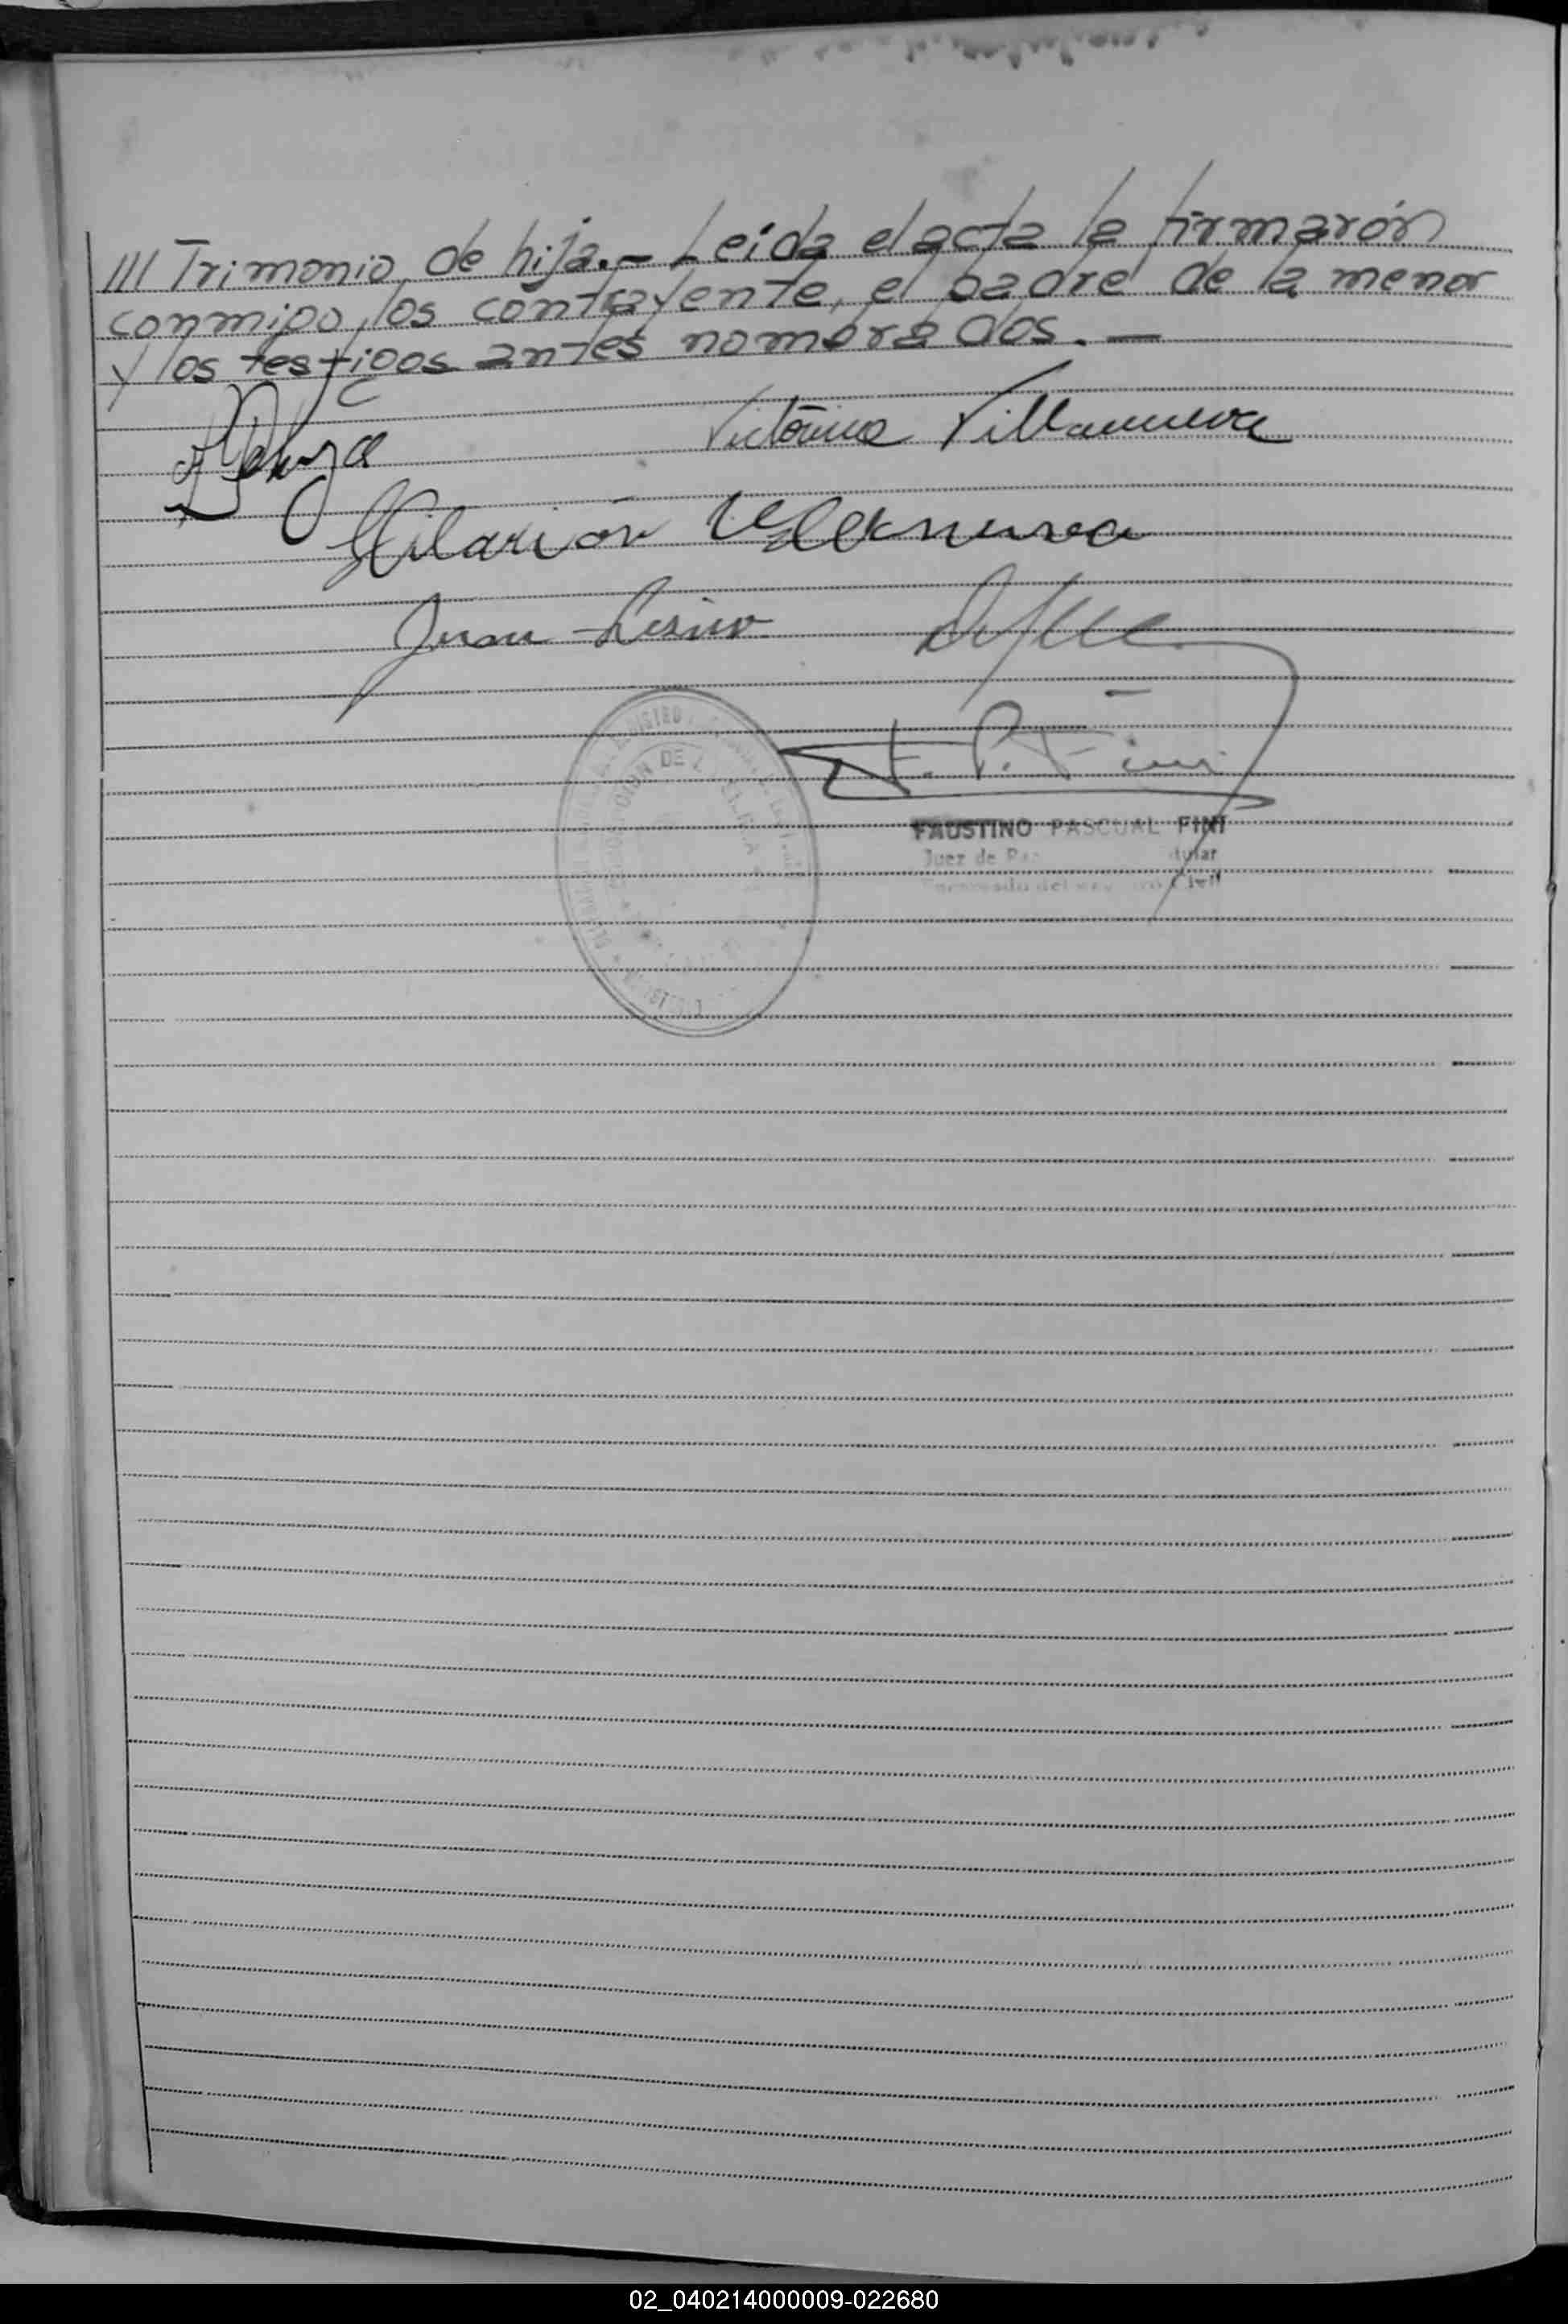 /// Trimonio, de hija.- Leida el acta la firmarón
conmigo, los contrayente, el padre de la menor
y los testigos antes nombrados. —
Victorina Villanueva
Hilarión Villanueva
Juan
F. P. Fini
FAUSTINO PASCUAL FINI
Juez de Paz
Civil
DE
02_040214000009-022680